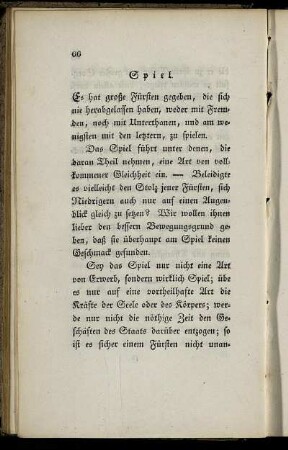 66
Spiel.
Es hat große Fürsten gegeben, die sich
nie herabgelassen haben, weder mit Frem-
den, noch mit Unterthanen, und am we-
nigsten mit den letztern, zu spielen.
Das Spiel führt unter denen, die
daran Theil nehmen, eine Art von voll-
kommener Gleichheit ein. — Beleidigte
es vielleicht den Stolz jener Fürsten, sich
Niedrigern auch nur auf einen Augen-
blick gleich zu setzen? Wir wollen ihnen
lieber den bessern Bewegungsgrund ge-
ben, daß sie überhaupt am Spiel keinen
Geschmack gefunden.
Sey das Spiel nur nicht eine Art
von Erwerb, sondern wirklich Spiel; übe
es nur auf eine vortheilhafte Art die
Kräfte der Seele oder des Körpers; wer-
de nur nicht die nöthige Zeit den Ge-
schäften des Staats darüber entzogen; so
ist es sicher einem Fürsten nicht unan-